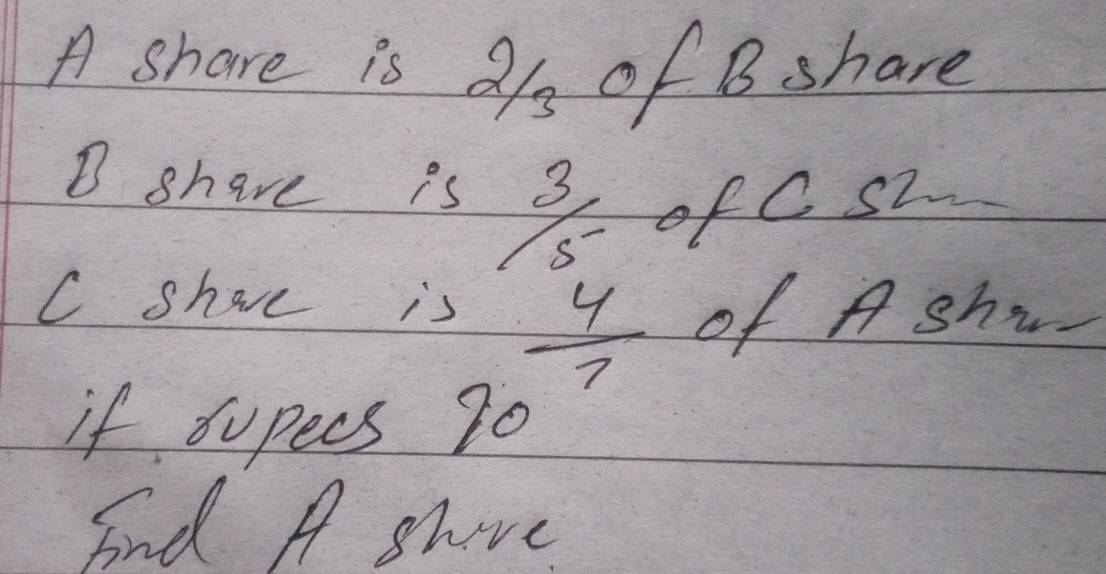 A share is 2/3 of B share
B share is 3/5 of C
C share is 4/7 of A
if rupees 90
Find A share